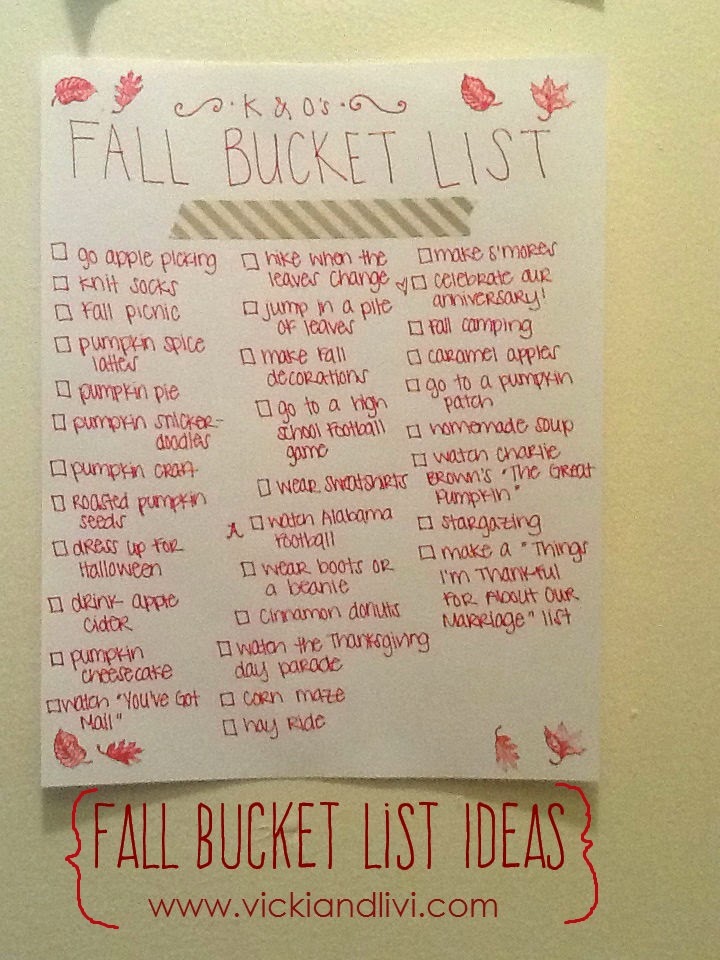 K & O's
FALL BUCKET LIST
go apple picking
knit socks
fall picnic
pumpkin spice
lattes
pumpkin pie
pumpkin snicker-
doodles
pumpkin craft
roasted pumpkin
seeds
dress up for
Halloween
drink apple
cider
pumpkin
cheesecake
watch "You've Got
Mail"
hike when the
leaves change
jump in a pile
of leaves
make fall
decorations
go to a high
school football
game
wear sweatshirts
A watch Alabama
football
wear boots or
a beanie
cinnamon donuts
watch the Thanksgiving
day parade
corn maze
hay ride
make s'mores
celebrate our
anniversary!
fall camping
caramel apples
go to a pumpkin
patch
homemade soup
watch charlie
Brown's "The Great
Pumpkin"
stargazing
make a "Things
I'm Thankful
For About Our
Marriage" list
{FALL BUCKET LiST IDEAS}
www.vickiandlivi.com